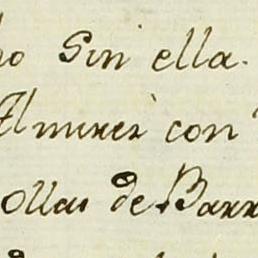 ho Sin ella.
Almirès con
ollas de Barr